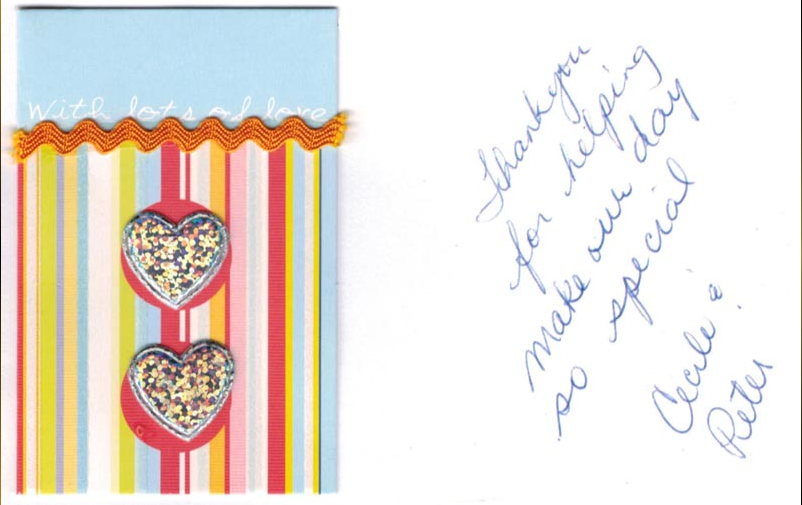 With lots of love
Thankyou
for helping
make our day
so special
Cecile &
Peter